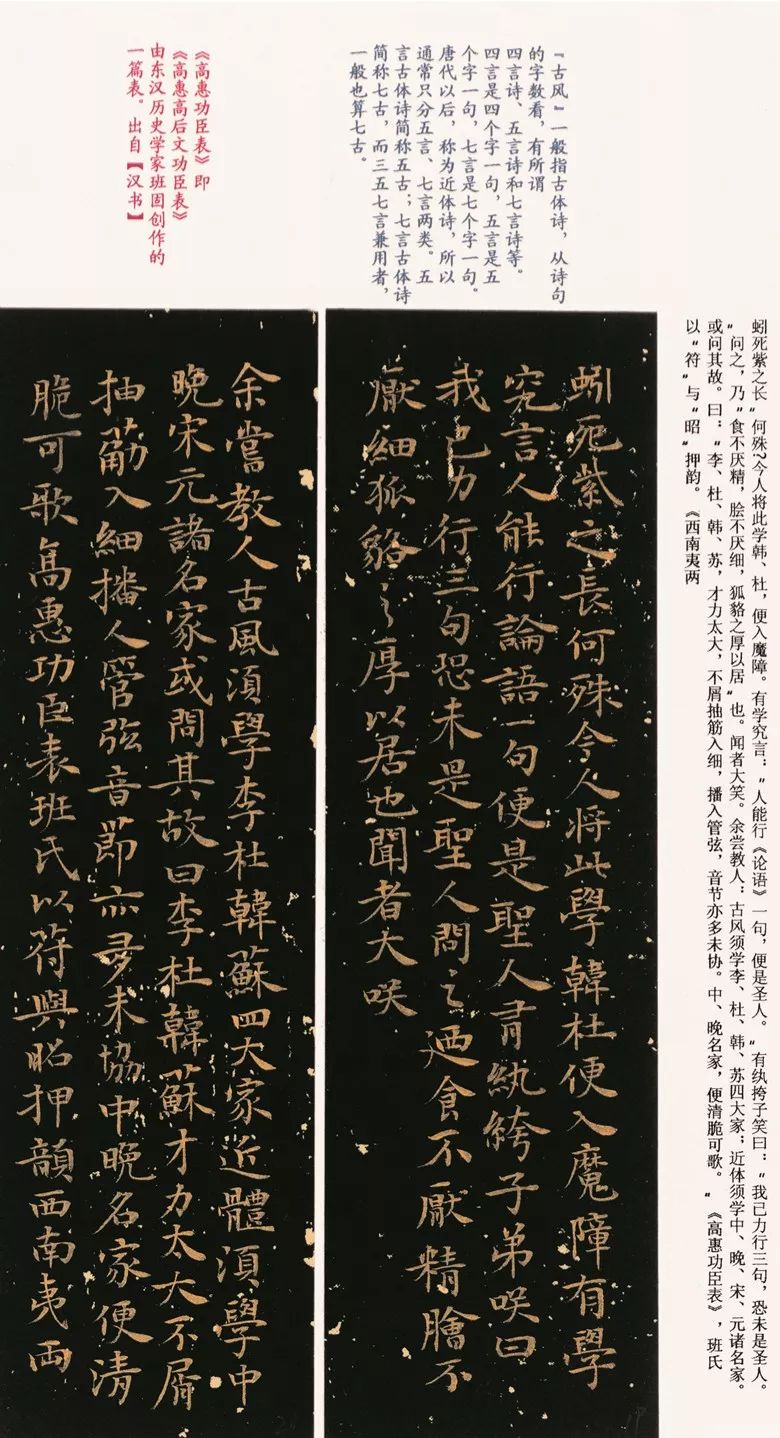 『古风』一般指古体诗，从诗句
的字数看，有所谓
四言诗、五言诗和七言诗等。
四言是四个字一句，五言是五
个字一句，七言是七个字一句。
唐代以后，称为近体诗，所以
通常只分五言、七言两类。五
言古体诗简称五古；七言古体诗
简称七古，而三五七言兼用者，
一般也算七古。
《高惠功臣表》即
《高惠高后文功臣表》
由东汉历史学家班固创作的
一篇表。出自【汉书】
蚓死紫之长“何殊?今人将此学韩、杜，便入魔障。有学究言：“人能行《论语》一句，便是圣人。”有纨挎子笑曰：“我已力行三句，恐未是圣人。
“问之，乃“食不厌精，脍不厌细，狐貉之厚以居”也。闻者大笑。余尝教人：古风须学李、杜、韩、苏四大家；近体须学中、晚、宋、元诸名家。
或问其故。曰：“李、杜、韩、苏，才力太大，不屑抽筋入细，播入管弦，音节亦多未协。中、晚名家，便清脆可歌。”《高惠功臣表》，班氏
以“符”与“昭”押韵。《西南夷两
蚓死紫之長何殊今人将此學韓杜便入魔障有學
究言人能行論語一句便是聖人有紈絝子弟咲曰
我已力行三句恐未是聖人問之迺食不厭精膾不
厭細狐貉之厚以居也聞者大咲
余嘗教人古風湏學李杜韓蘇四大家近體湏學中
晚宋元諸名家或問其故曰李杜韓蘇才力太大不屑
抽筋入細播入管弦音節亦多未協中晚名家便清
脆可歌高惠功臣表班氏以符與昭押韻西南夷両